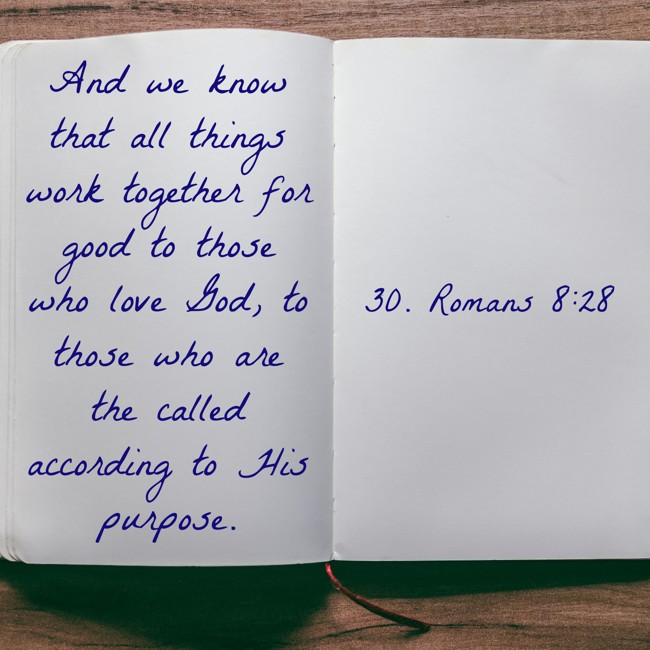 And we know
that all things
work together for
good to those
who love God, to
those who are
the called
according to His
purpose.
30. Romans 8:28